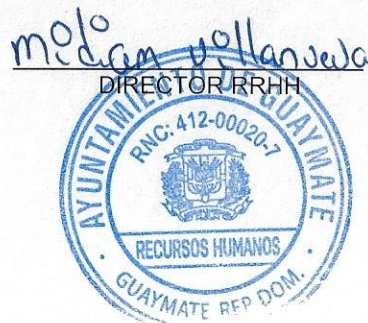 Miriam Villanueva
DIRECTOR RRHH
AYUNTAMIENTO DE GUAYMATE
RNC: 412-00020-7
RECURSOS HUMANOS
GUAYMATE REP DOM.